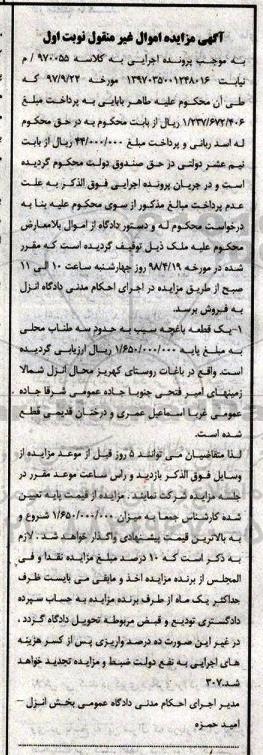 آگهی مزایده اموال غیر منقول نوبت اول
به موجب پرونده اجرایی به کلاسه ۹۷۰۰۵۵ / م
نیابت ۱۳۹۷۰۳۵۰۰۱۲۴۸۰۱۶ مورخه ۹۷/۹/۲۲ که
طی آن محکوم علیه طاهر بابایی به پرداخت مبلغ
۱/۲۳۷/۶۷۲/۴۰۶ ریال از بابت محکوم به در حق محکوم
له اسد ربانی و پرداخت مبلغ ۴۴/۰۰۰/۰۰۰ ریال از بابت
نیم عشر دولتی در حق صندوق دولت محکوم گردیده
است و در جریان پرونده اجرایی فوق الذکر به علت
عدم پرداخت مبالغ مذکور از سوی محکوم علیه بنا به
درخواست محکوم له و دستور دادگاه از اموال بلامعارض
محکوم علیه ملک ذیل توقیف گردیده است که مقرر
شده در مورخه ۹۸/۴/۱۹ روز چهارشنبه ساعت ۱۰ الی ۱۱
صبح از طریق مزایده در اجرای احکام مدنی دادگاه انزل
به فروش برسد.
۱-یک قطعه باغچه سیب به حدود سه طناب محلی
به مبلغ پایه ۱/۶۵۰/۰۰۰/۰۰۰ ریال ارزیابی گردیده
است. واقع در باغات روستای کهریز محال انزل شمالا
زمینهای امیر فتحی جنوبا جاده عمومی شرقا جاده
عمومی غربا اسماعیل عمری و درختان قدیمی قطع
شده است.
لذا متقاضیان می توانند ۵ روز قبل از موعد مزایده از
وسایل فوق الذکر بازدید و راس ساعت موعد مقرر در
جلسه مزایده شرکت نمایند . مزایده از قیمت پایه تعیین
شده کارشناس جمعا به میزان ۱/۶۵۰/۰۰۰/۰۰۰ شروع و
به بالاترین قیمت پیشنهادی واگذار خواهد شد . لازم
به ذکر است که ۱۰ درصد مبلغ مزایده نقدا و فی
المجلس از برنده مزایده اخذ و مابقی می بایست ظرف
حداکثر یک ماه از طرف برنده مزایده به حساب سپرده
دادگستری تودیع و قبض مربوطه تحویل دادگاه گردد ،
در غیر این صورت ده درصد واریزی پس از کسر هزینه
های اجرایی به نفع دولت ضبط و مزایده تجدید خواهد
شد.۳۰۷
مدیر اجرای احکام مدنی دادگاه عمومی بخش انزل –
امید حمزه